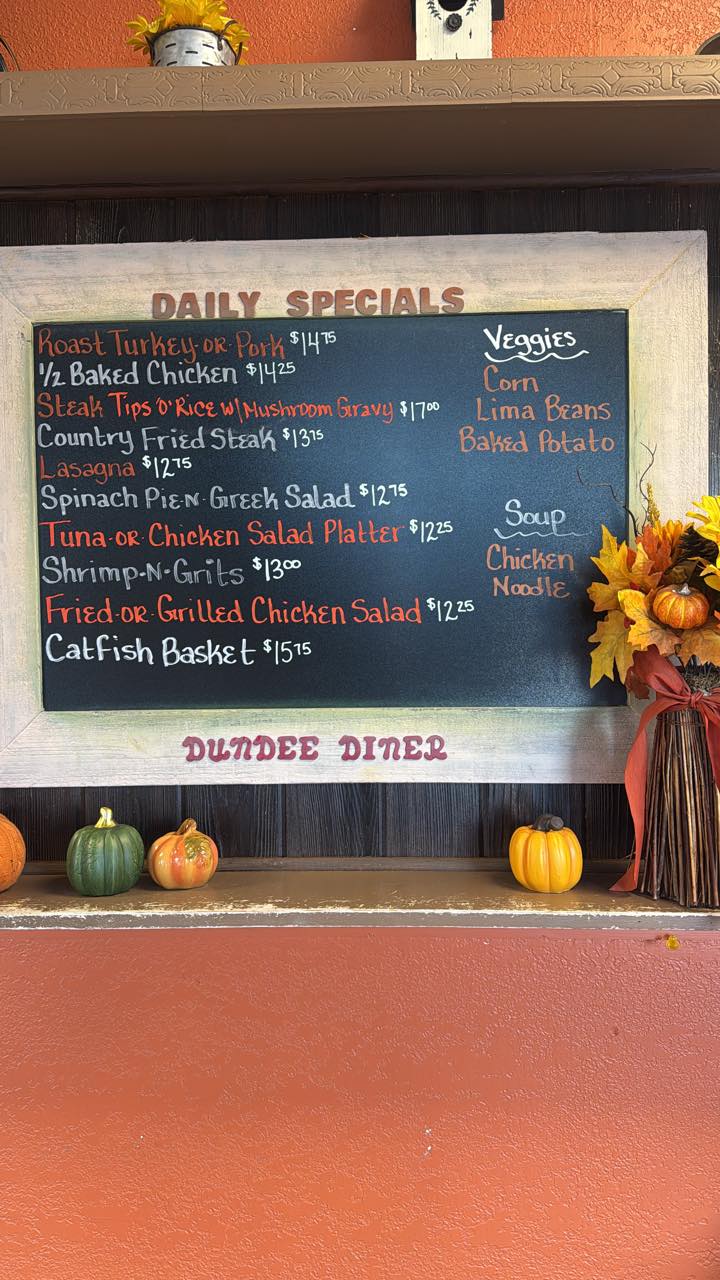 DAILY SPECIALS
Roast Turkey-OR-Pork $14.75
1/2 Baked Chicken $14.25
Steak Tips 'O' Rice W/Mushroom Gravy $17.00
Country Fried Steak $13.75
Lasagna $12.75
Spinach Pie-N-Greek Salad $12.75
Tuna-OR-Chicken Salad Platter $12.25
Shrimp-N-Grits $13.00
Fried-OR-Grilled Chicken Salad $12.25
Catfish Basket $15.75
Veggies
Corn
Lima Beans
Baked Potato
Soup
Chicken
Noodle
DUNDEE DINER